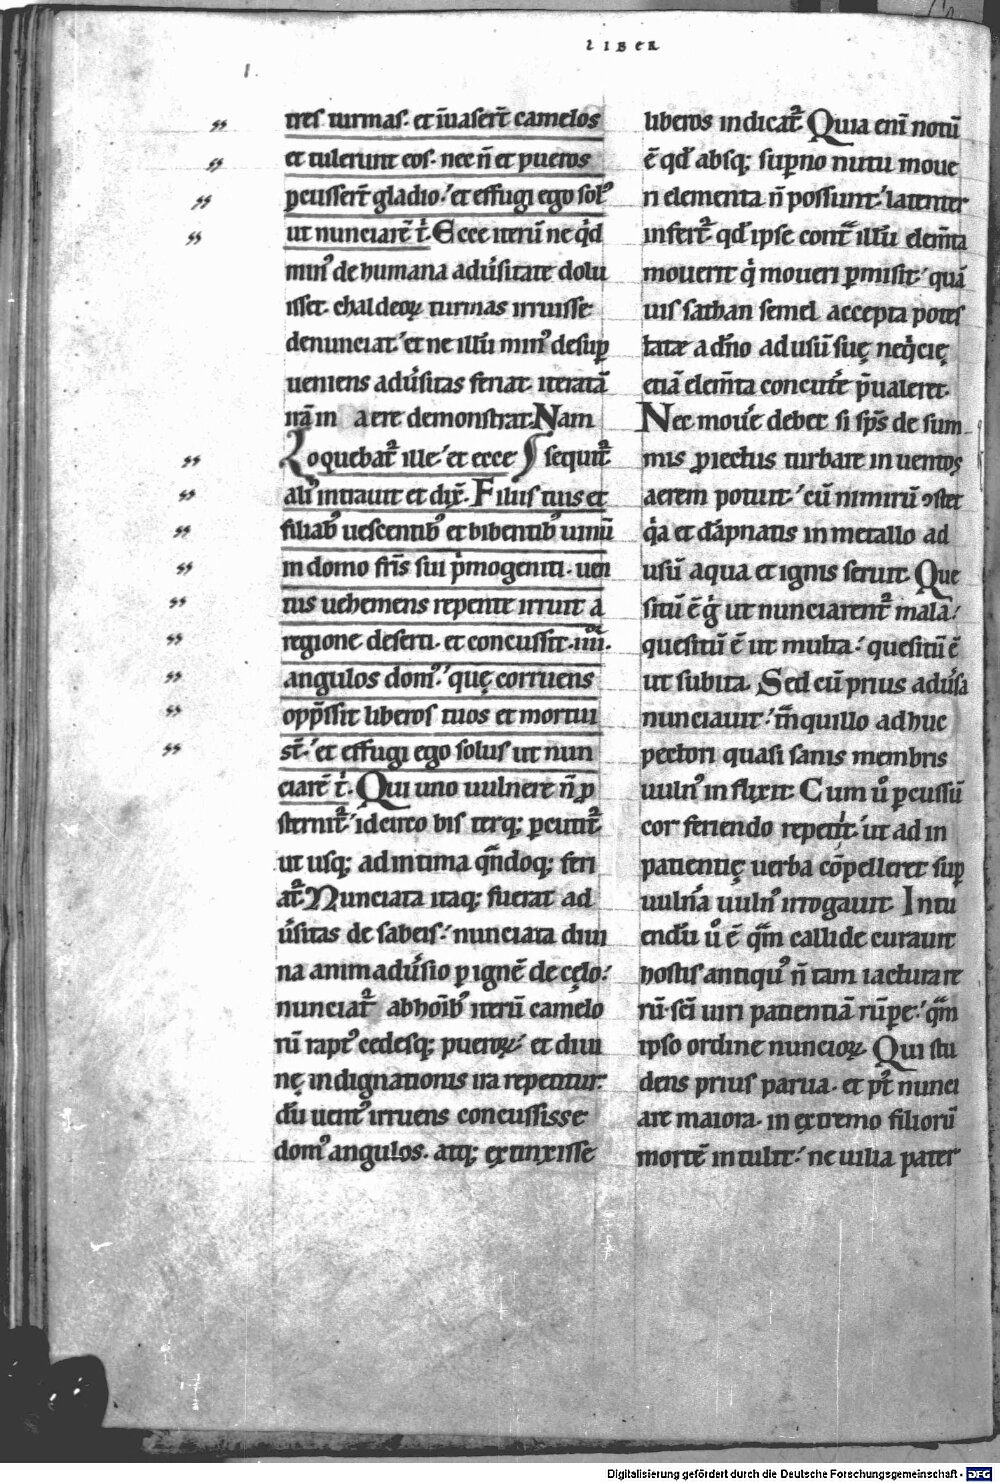 LIBER
tres turmas· et īuaser̄t camelos
et tulerunt eos· nec n̄ et pueros
ꝑcusser̄t gladio· et effugi ego solꝰ
ut nunciarē t͛· Ecce iterū ne qͥd
minꝰ de humana adu͛sitate dolu
isset· chaldeoꝝ turmas irruisse
denunciat· et ne illū minꝰ desuꝑ
ueniens adu͛sitas feriat· iteratā
irā in aere demonstrat· Nam
Loquebat᷑ ille· et ecce sequit᷑
aliꝰ intrauit et dix̄· Filiis tuis et
filiabꝰ uescentibꝰ et bibentibꝰ uinū
in domo fr̄is sui pͥmogeniti· uen
tus uehemens repente irruit a
regione deserti· et concussit ·iiii·
angulos domꝰ· quę corruens
opp̄ssit liberos tuos et mortui
st̄· et effugi ego solus ut nun
ciarē t͛· Qui uno uulnere n̄ ꝓ
sternit᷑· idcirco bis terq; ꝑcutit᷑
ut usq; ad intima qn̄doq; feri
at᷑· Nunciata itaq; fuerat ad
u͛sitas de sabeis· nunciata diui
na animadu͛sio ꝑ ignē de cęlo·
nunciat᷑ ab hoīb; iterū camelo
rū raptꝰ cedesq; pueroꝝ· et diui
nę indignationis ira repetitur·
dū uentꝰ irruens concussisse
domꝰ angulos· atq; extinxisse
liberos indicat᷑· Quia eni notū
ē qd̄ absq; suꝑno nutu moue
ri elementa n̄ possunt· latenter
infert᷑ qd̄ ipse contͣ illū elem̄ta
mouerit qͥ moueri ꝑmisit· quā
uis sathan semel accepta potes
tate a dn̄o ad usū suę neqͥcię
etiā elem̄ta concute͛ p̄ualeret·
Nec moue͛ debet si sp̄s de sum
mis ꝓiectus turbare in uentos
aerem potuit· cū nimirū ꝯstet
qͥa et dāpnatis in metallo ad
usū aqua et ignis seruit· Que
situ ē gͦ ut nunciarent᷑ mala·
quesitū ē ut multa· quesitū ē
ut subita· Sed cū prius adu͛sa
nunciauit· tͣnquillo adhuc
pectori quasi sanis membris
uulnꝰ inflixit· Cum uͦ ꝑcussū
cor feriendo repetit· ut ad in
patientię uerba cōpelleret suꝑ
uulna͛ uulnꝰ irrogauit· Intu
endū uͦ ē qͣm callide curauit
hostis antiquꝰ n̄ tam iactura re
rū sc̄i uiri patientiā rūpe͛· qͣm
ipso ordine nuncioꝝ· Qui stu
dens prius parua· et pͭ nunci
are maiora· in extremo filiorū
mortē intulit· ne uilia pater
Digitalisierung gefördert durch die Deutsche Forschungsgemeinschaft - DFG